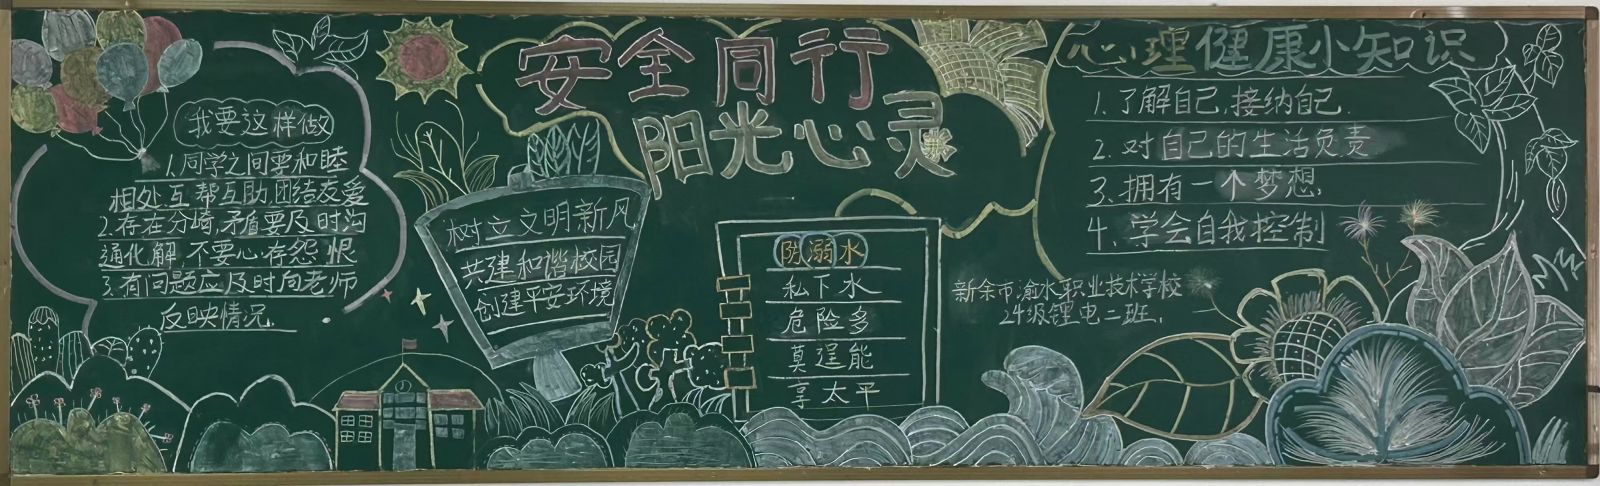 安全同行
阳光心灵
我要这样做
1.同学之间要和睦
相处互帮互助团结友爱
2.存在分崎,矛盾要及时沟
通化解,不要心存怨恨
3.有问题应及时向老师
反映情况.
树立文明新风
共建和谐校园
创建平安环境
防溺水
私下水
危险多
莫逞能
享太平
心理健康小知识
1.了解自己,接纳自己.
2.对自己的生活负责
3.拥有一个梦想.
4.学会自我控制
新余市渝水职业技术学校
24级锂电二班.